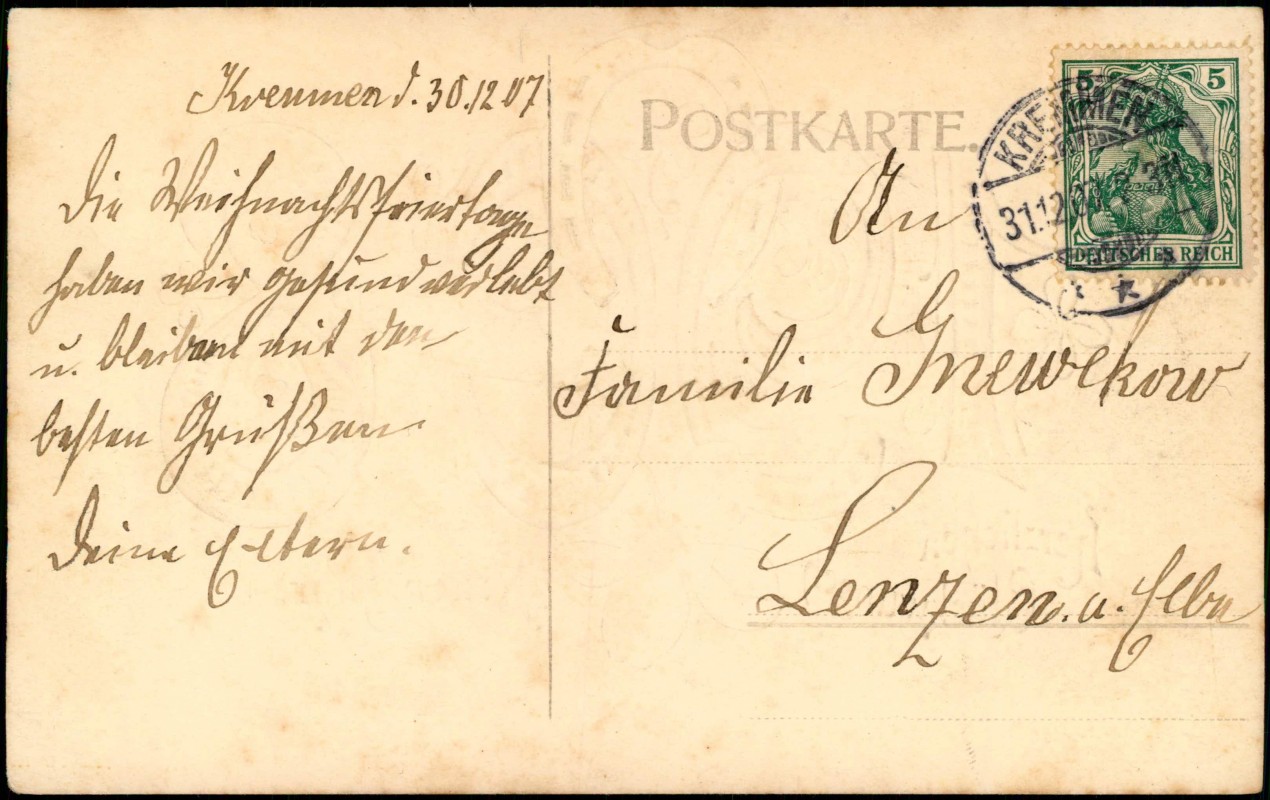 Kremmen d. 30.12.07
Die Weihnachtsfeiertage
haben wir gesund verlebt
u. bleiben mit den
besten Grüßen
Deine Eltern.
POSTKARTE.
An
Familie Grewekow
Lenzen. a. Elbe
5 5
DEUTSCHES REICH
KREMMEN
31.12.07